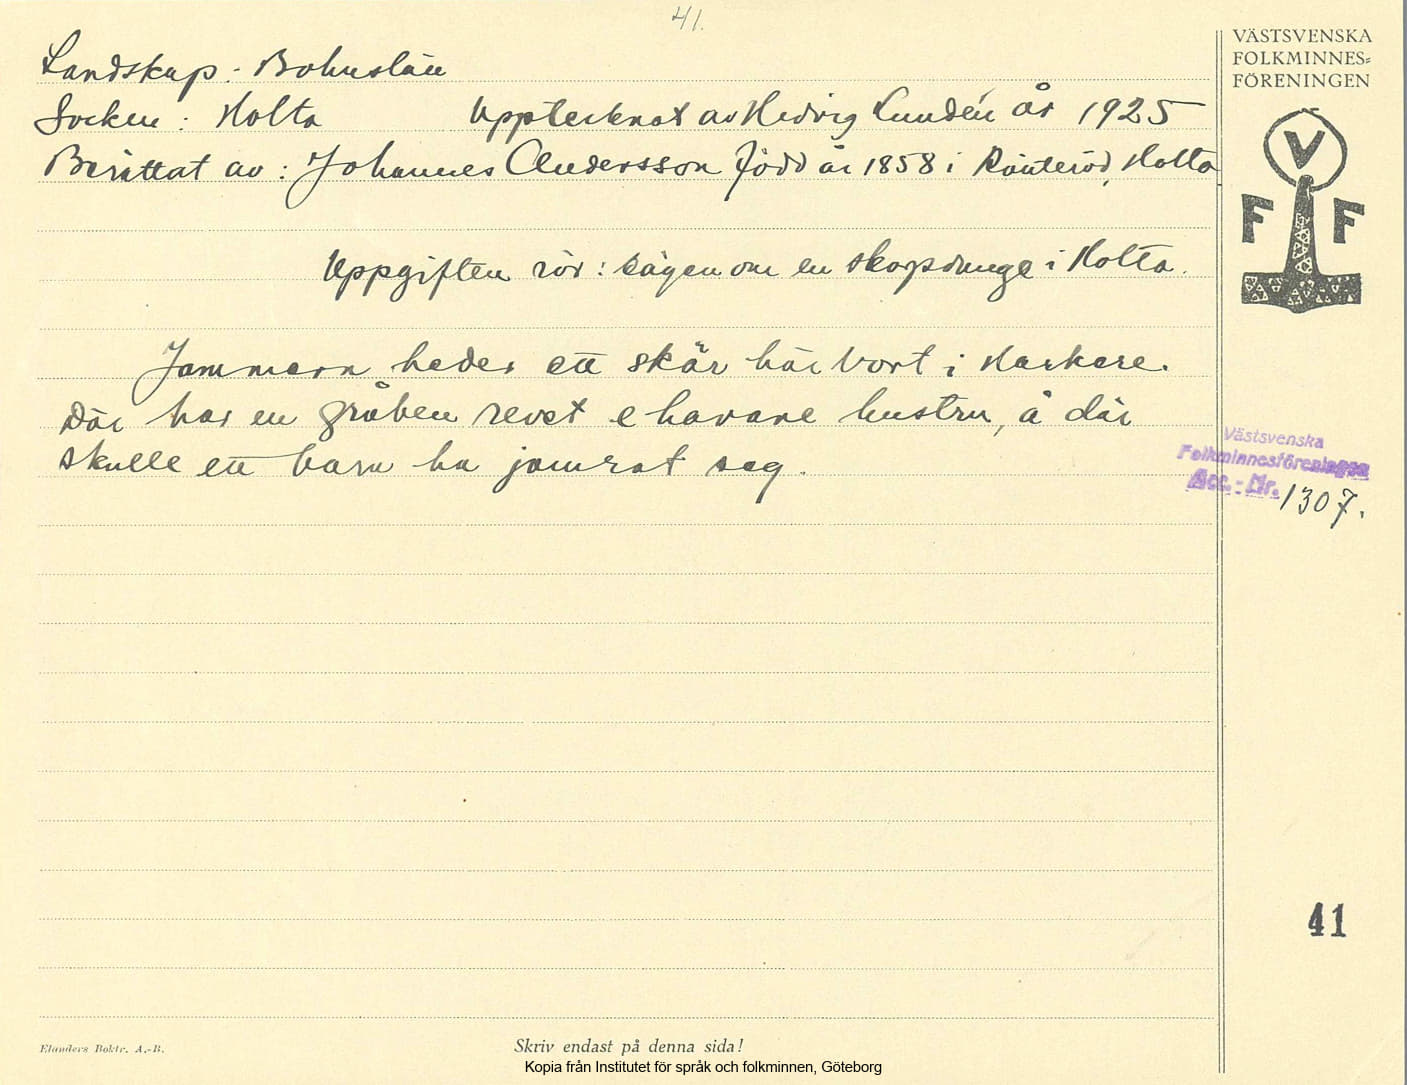 41.
Landskap: Bohuslän
Socken: Holta Upptecknat av Hedvig Lundén år 1925
Berättat av: Johannes Andersson född år 1858 i Ränteröd, Holta
Uppgiften rör: sägen om en skogsdunge i Holta.
Jammern heder ett skär här bort i Harkere.
Där har en gråben revet e havane hustru, å där
skulle ett barn ha jamrat seg.
VÄSTSVENSKA
FOLKMINNES=
FÖRENINGEN
V
F F
Västsvenska
Folkminnesföreningen
Acc.-Nr. 1307.
41
Elanders Boktr. A.-B.
Skriv endast på denna sida!
Kopia från Institutet för språk och folkminnen, Göteborg